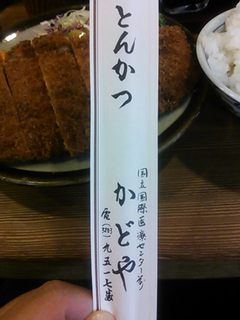 とんかつ
かどや
国立国際医療センター前
電(3203)九五一七